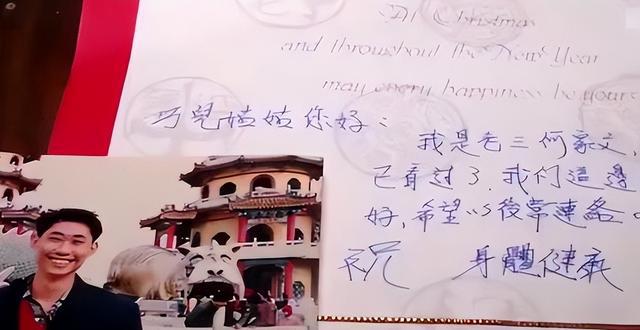 At Christmas
and throughout the New Year
may every happiness be yours
巧兒姑姑您好：
我是老三何家文，
已看过了，我们這邊
好，希望以後常連絡
祝 身體健康